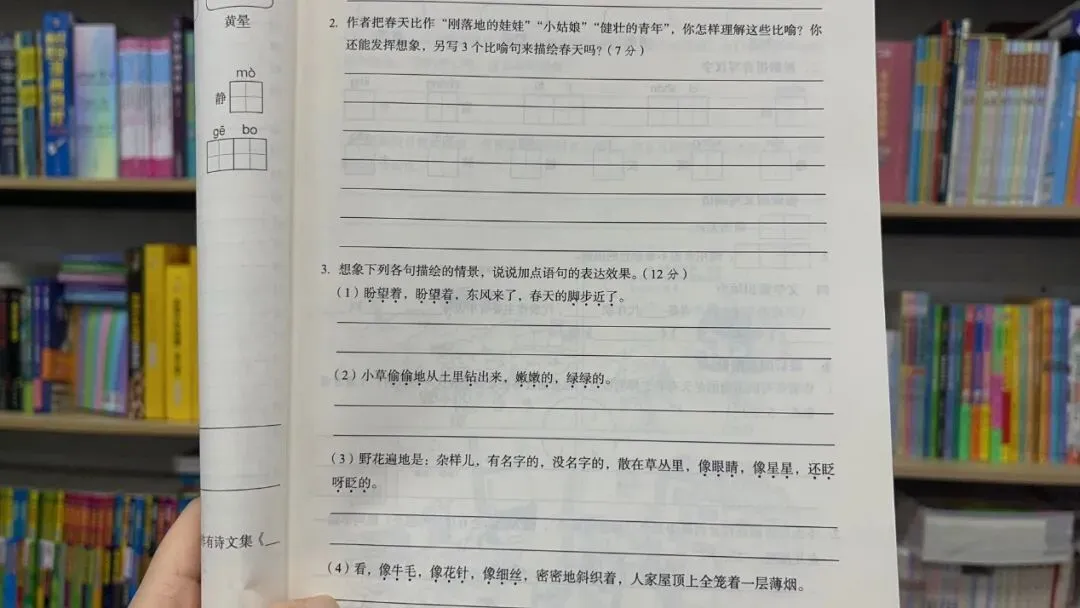 黄晕
mò
静
gē bo
有诗文集《
2. 作者把春天比作“刚落地的娃娃”“小姑娘”“健壮的青年”，你怎样理解这些比喻？你
还能发挥想象，另写 3 个比喻句来描绘春天吗？（7 分）
3. 想象下列各句描绘的情景，说说加点语句的表达效果。（12 分）
（1）盼望着，盼望着，东风来了，春天的脚步近了。
（2）小草偷偷地从土里钻出来，嫩嫩的，绿绿的。
（3）野花遍地是：杂样儿，有名字的，没名字的，散在草丛里，像眼睛，像星星，还眨
呀眨的。
（4）看，像牛毛，像花针，像细丝，密密地斜织着，人家屋顶上全笼着一层薄烟。